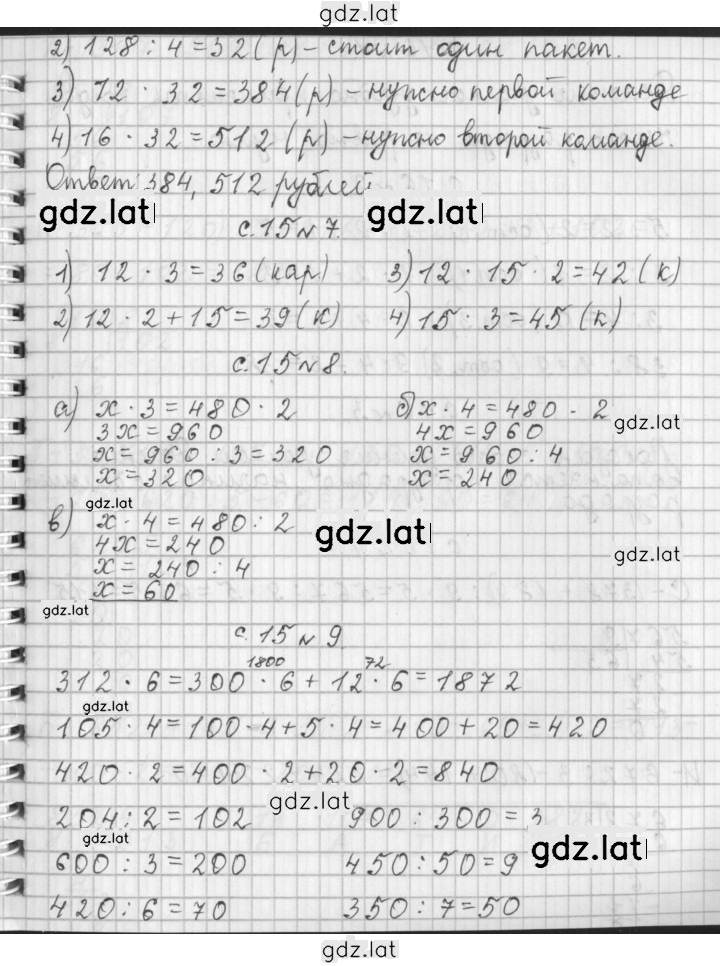 gdz.lat
2) 128 : 4 = 32 (р) – стоит один пакет.
3) 12 · 32 = 384 (р) – нужно первой команде
4) 16 · 32 = 512 (р) – нужно второй команде.
Ответ: 384, 512 рублей.
gdz.lat gdz.lat
с. 15 № 7.
1) 12 · 3 = 36 (кар) 3) 12 · 15 · 2 = 42 (к)
2) 12 · 2 + 15 = 39 (к) 4) 15 · 3 = 45 (к)
с. 15 № 8.
а) x · 3 = 480 · 2 б) x · 4 = 480 · 2
gdz.lat
3x = 960 4x = 960
x = 960 : 3 = 320 x = 960 : 4
x = 320 x = 240
gdz.lat
в) x · 4 = 480 : 2
gdz.lat
4x = 240
gdz.lat
x = 240 : 4
x = 60
gdz.lat
с. 15 № 9.
1800 72
312 · 6 = 300 · 6 + 12 · 6 = 1872
gdz.lat
105 · 4 = 100 · 4 + 5 · 4 = 400 + 20 = 420
420 · 2 = 400 · 2 + 20 · 2 = 840
gdz.lat
204 : 2 = 102 900 : 300 = 3
gdz.lat gdz.lat
600 : 3 = 200 450 : 50 = 9
420 : 6 = 70 350 : 7 = 50
gdz.lat